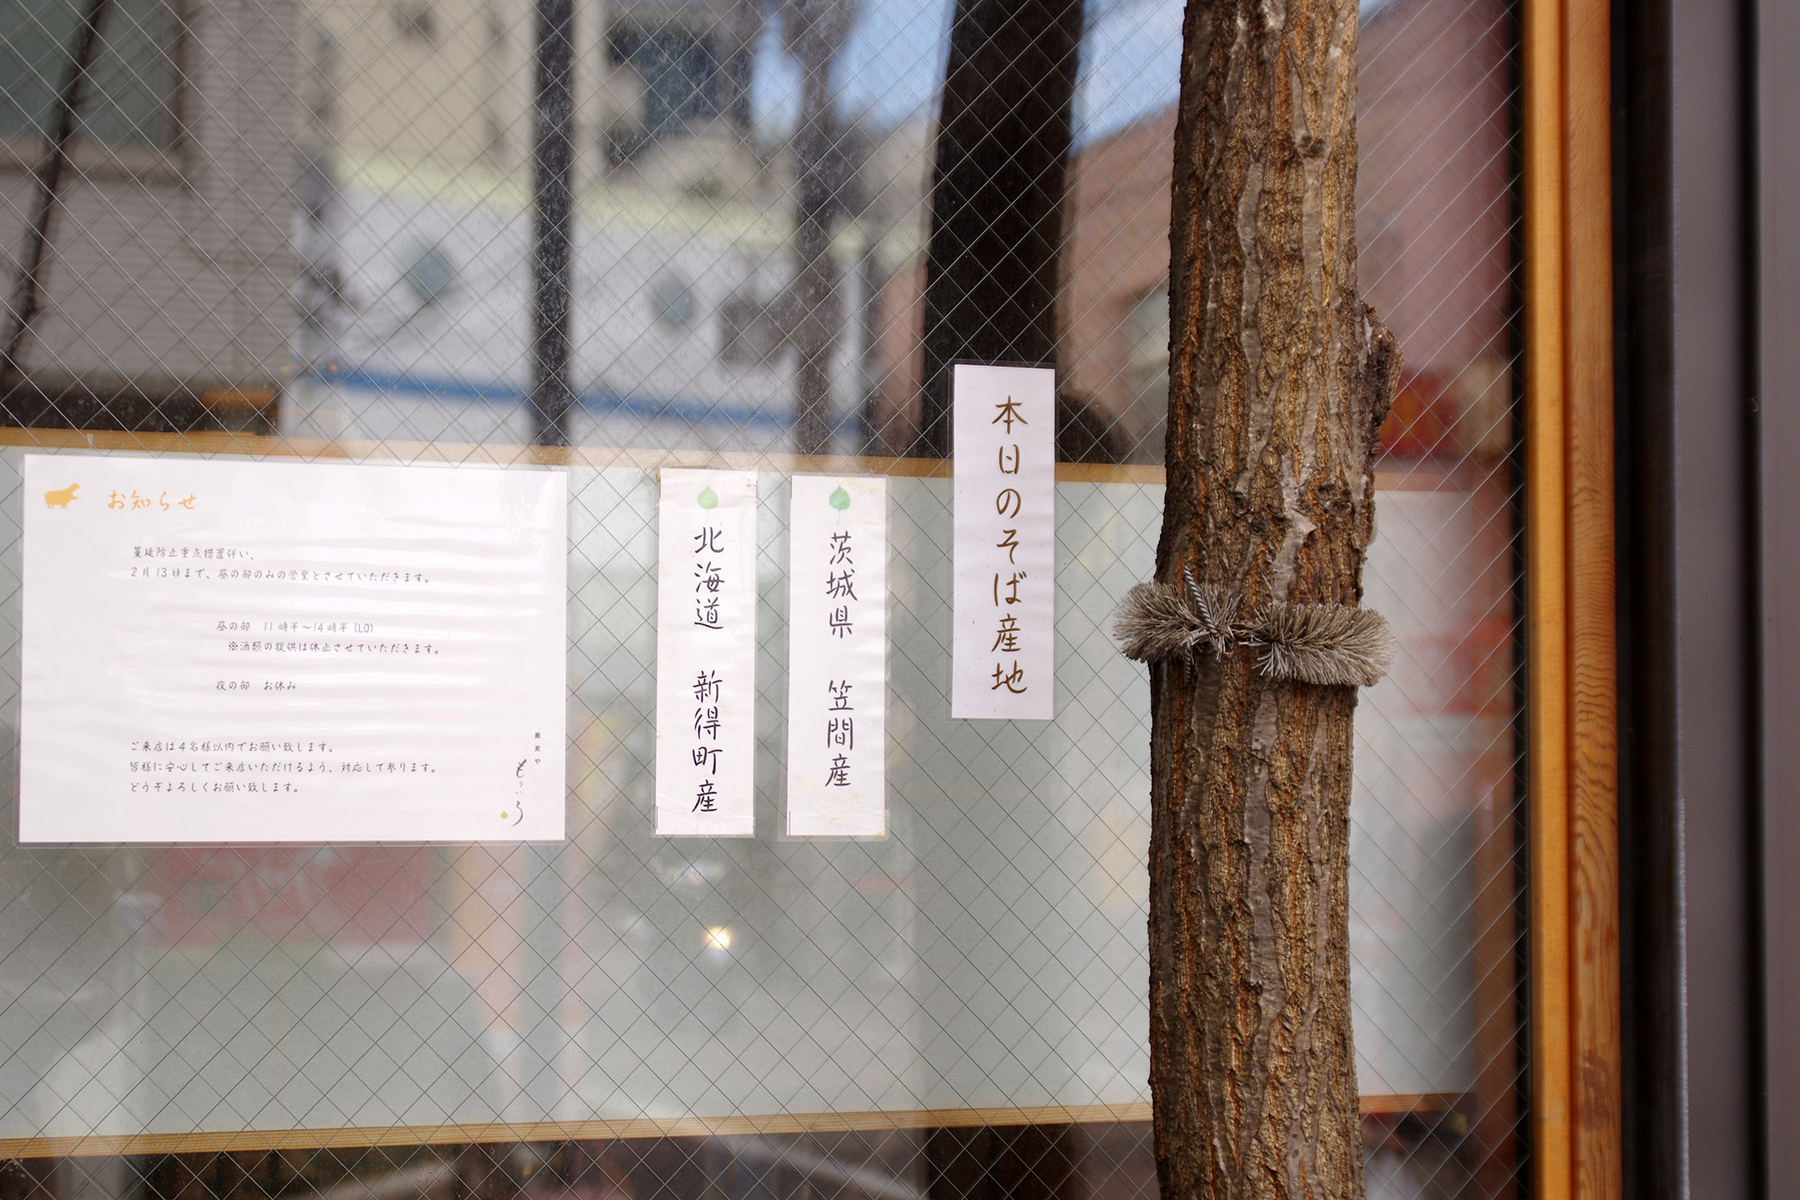 お知らせ
蔓延防止重点措置伴い、
2月13日まで、昼の部のみの営業とさせていただきます。
昼の部 11時半〜14時半(LO)
※酒類の提供は休止させていただきます。
夜の部 お休み
ご来店は4名様以内でお願い致します。
皆様に安心してご来店いただけるよう、対応して参ります。
どうぞよろしくお願い致します。
蕎麦や
本日のそば産地
茨城県 笠間産
北海道 新得町産